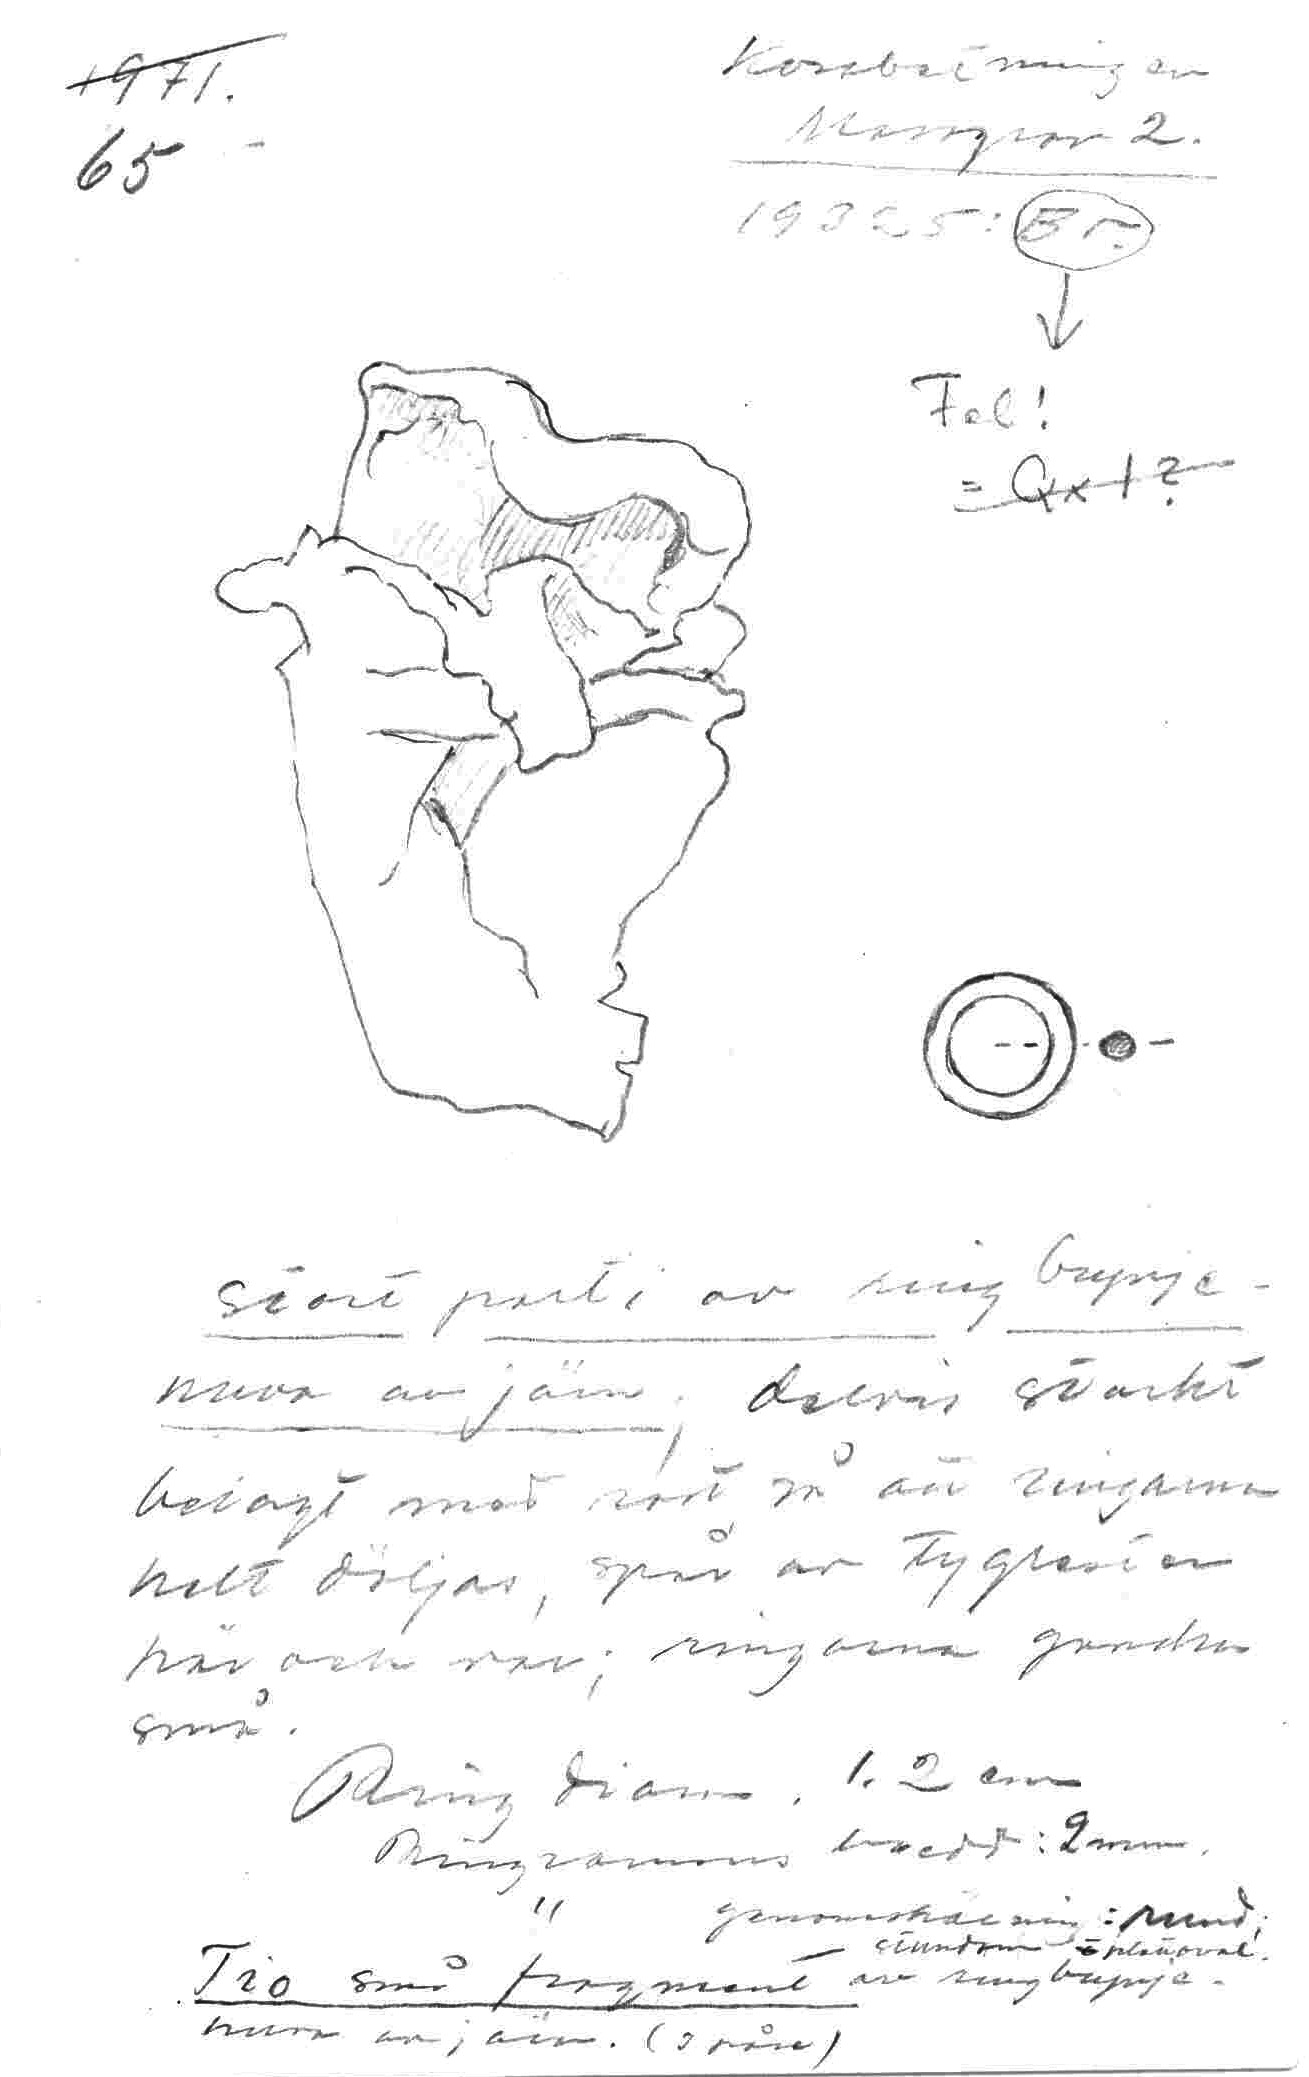 1971.
65
Korsbetningen
Massgrav 2.
19325: Br.
Fel!
= Qx 1?
Stort parti av ringbrynje-
huva av järn; delvis starkt
belagt med rost så att ringarna
helt döljas, spår av tygrester
här och var; ringarna ganska
små.
Ring diam. 1.2 cm
Ringramens bredd: 2 mm.
" genomskärning: rund;
stundom plattoval.
Tio små fragment av ringbrynje-
huva av järn. (i påse)